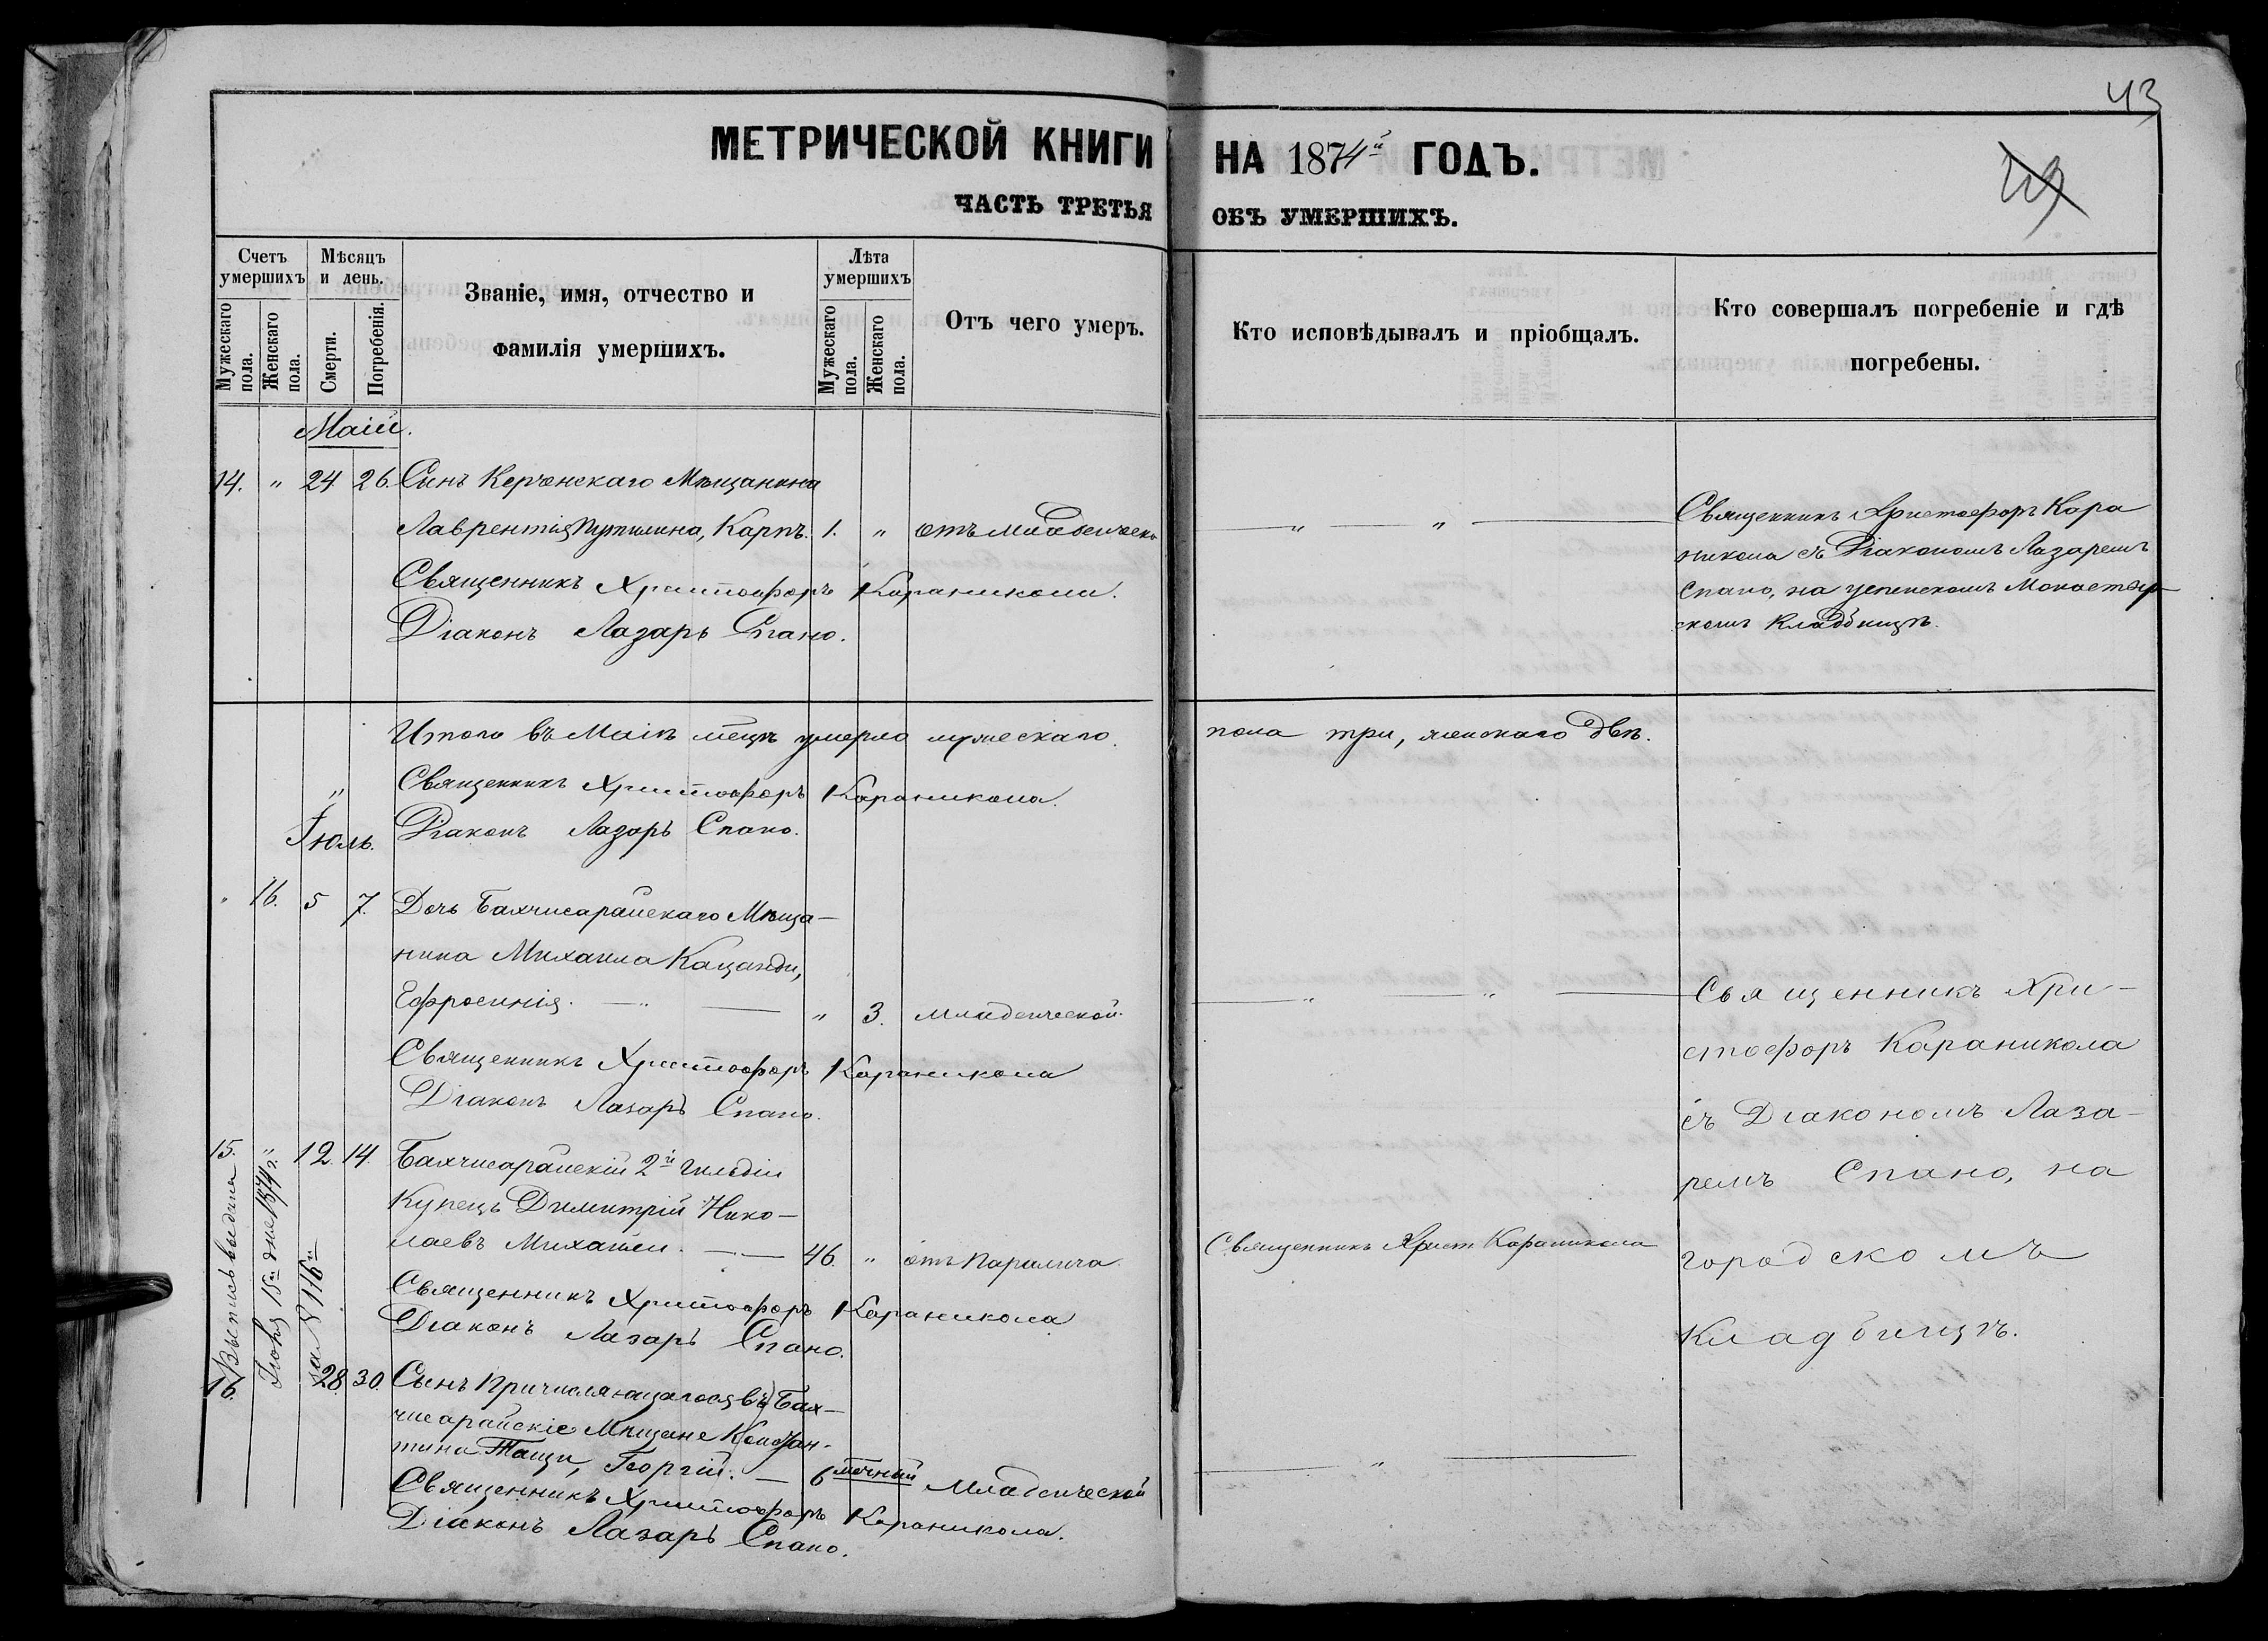 43
МЕТРИЧЕСКОЙ КНИГИ НА 1874й ГОДЪ.
ЧАСТЬ ТРЕТЬЯ ОБЪ УМЕРШИХЪ.
Счетъ умершихъ
Мужескаго пола.
Женскаго пола.
Мѣсяцъ и день.
Смерти.
Погребенія.
Званіе, имя, отчество и
фамилія умершихъ.
Лѣта умершихъ
Мужескаго пола.
Женскаго пола.
Отъ чего умеръ.
Кто исповѣдывалъ и пріобщалъ.
Кто совершалъ погребеніе и гдѣ
погребены.
Маій.
14. " 24 26. Сынъ Керченскаго Мѣщанина
Лаврентія Путилина, Карпъ. 1. " отъ младенческ
Священникъ Христофоръ Караникола.
Діаконъ Лазарь Спано.
" "
Священникъ Христофоръ Кара
никола съ Діакономъ Лазаремъ
Спано, на успенскомъ Монастыр-
скомъ Кладбищѣ.
Итого въ Маіѣ мѣцѣ умерло мужескаго пола три, женскаго двѣ.
Священникъ Христофоръ Караникола.
Діаконъ Лазарь Спано.
"
Іюль.
" 16. 5 7. Дочь Бахчисарайскаго Мѣща-
нина Михаила Кацанди,
Ефросинія. — " — " 3. младенческой.
Священникъ Христофоръ Караникола
Діаконъ Лазарь Спано.
15. " 12. 14. Бахчисарайскій 2й гильдіи
Купецъ Димитрій Нико-
лаевъ Михайли. — 46. " отъ Паралича
Священникъ Христ. Караникола
Священникъ Христофоръ Караникола
Діаконъ Лазарь Спано.
Выпись выдана
Іюня 15го дня 1874 г.
за № 116м
16. 28 30. Сынъ Причисляющагося въ Бах-
чисарайскіе Мѣщане Констан-
тина Тащи, Георгій. — 6 мѣчный Младенческой
Священникъ Христофоръ Караникола.
Діаконъ Лазарь Спано.
" "
Священникъ Хри-
стофоръ Караникола
съ Діакономъ Лаза-
ремъ Спано, на
городскомъ
Кладбищѣ.
"